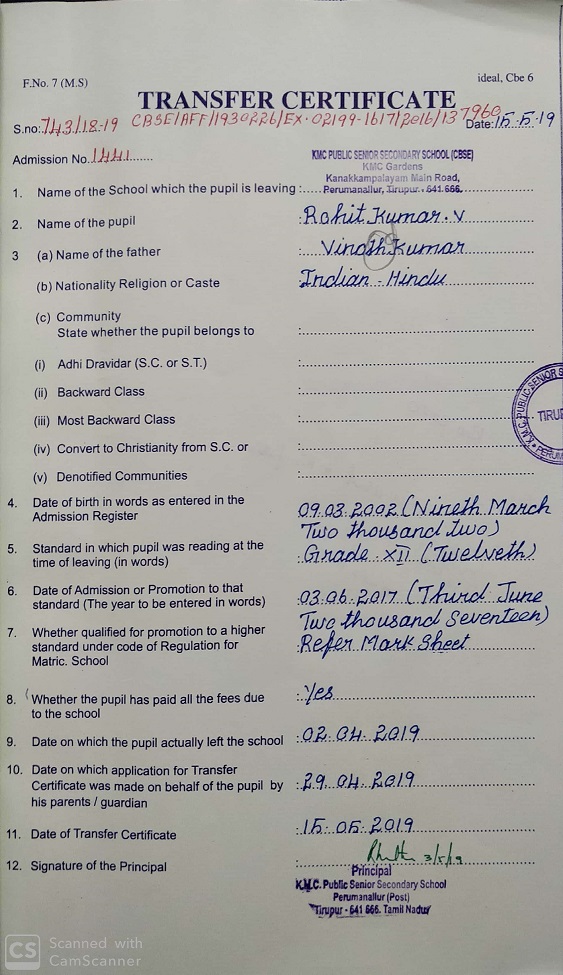 F.No. 7 (M.S)
ideal, Cbe 6
TRANSFER CERTIFICATE
S.no: 743/18-19 CBSE/AFF/1930226/EX-02199-1617/2016/137960 Date: 15.5.19
Admission No. 1441
KMC PUBLIC SENIOR SECONDARY SCHOOL (CBSE)
KMC Gardens
Kanakkampalayam Main Road,
1. Name of the School which the pupil is leaving : Perumanallur, Tirupur - 641 666.
2. Name of the pupil : Rohit Kumar. V
3 (a) Name of the father : Vinoth Kumar
(b) Nationality Religion or Caste : Indian - Hindu
(c) Community
State whether the pupil belongs to :
(i) Adhi Dravidar (S.C. or S.T.) :
(ii) Backward Class :
(iii) Most Backward Class :
(iv) Convert to Christianity from S.C. or :
(v) Denotified Communities :
K.M.C. PUBLIC SENIOR S
TIRUP
4. Date of birth in words as entered in the : 09.03.2002 (Nineth March
Admission Register Two thousand two)
5. Standard in which pupil was reading at the : Grade XII (Twelveth)
time of leaving (in words)
6. Date of Admission or Promotion to that : 03.06.2017 (Third June
standard (The year to be entered in words) Two thousand Seventeen)
7. Whether qualified for promotion to a higher : Refer Mark Sheet
standard under code of Regulation for
Matric. School
8. Whether the pupil has paid all the fees due : Yes
to the school
9. Date on which the pupil actually left the school : 02.04.2019
10. Date on which application for Transfer : 29.04.2019
Certificate was made on behalf of the pupil by
his parents / guardian
11. Date of Transfer Certificate : 15.05.2019
12. Signature of the Principal : 3/5/19
Principal
K.M.C. Public Senior Secondary School
Perumanallur (Post)
Tirupur - 641 666. Tamil Nadu
CS Scanned with
CamScanner